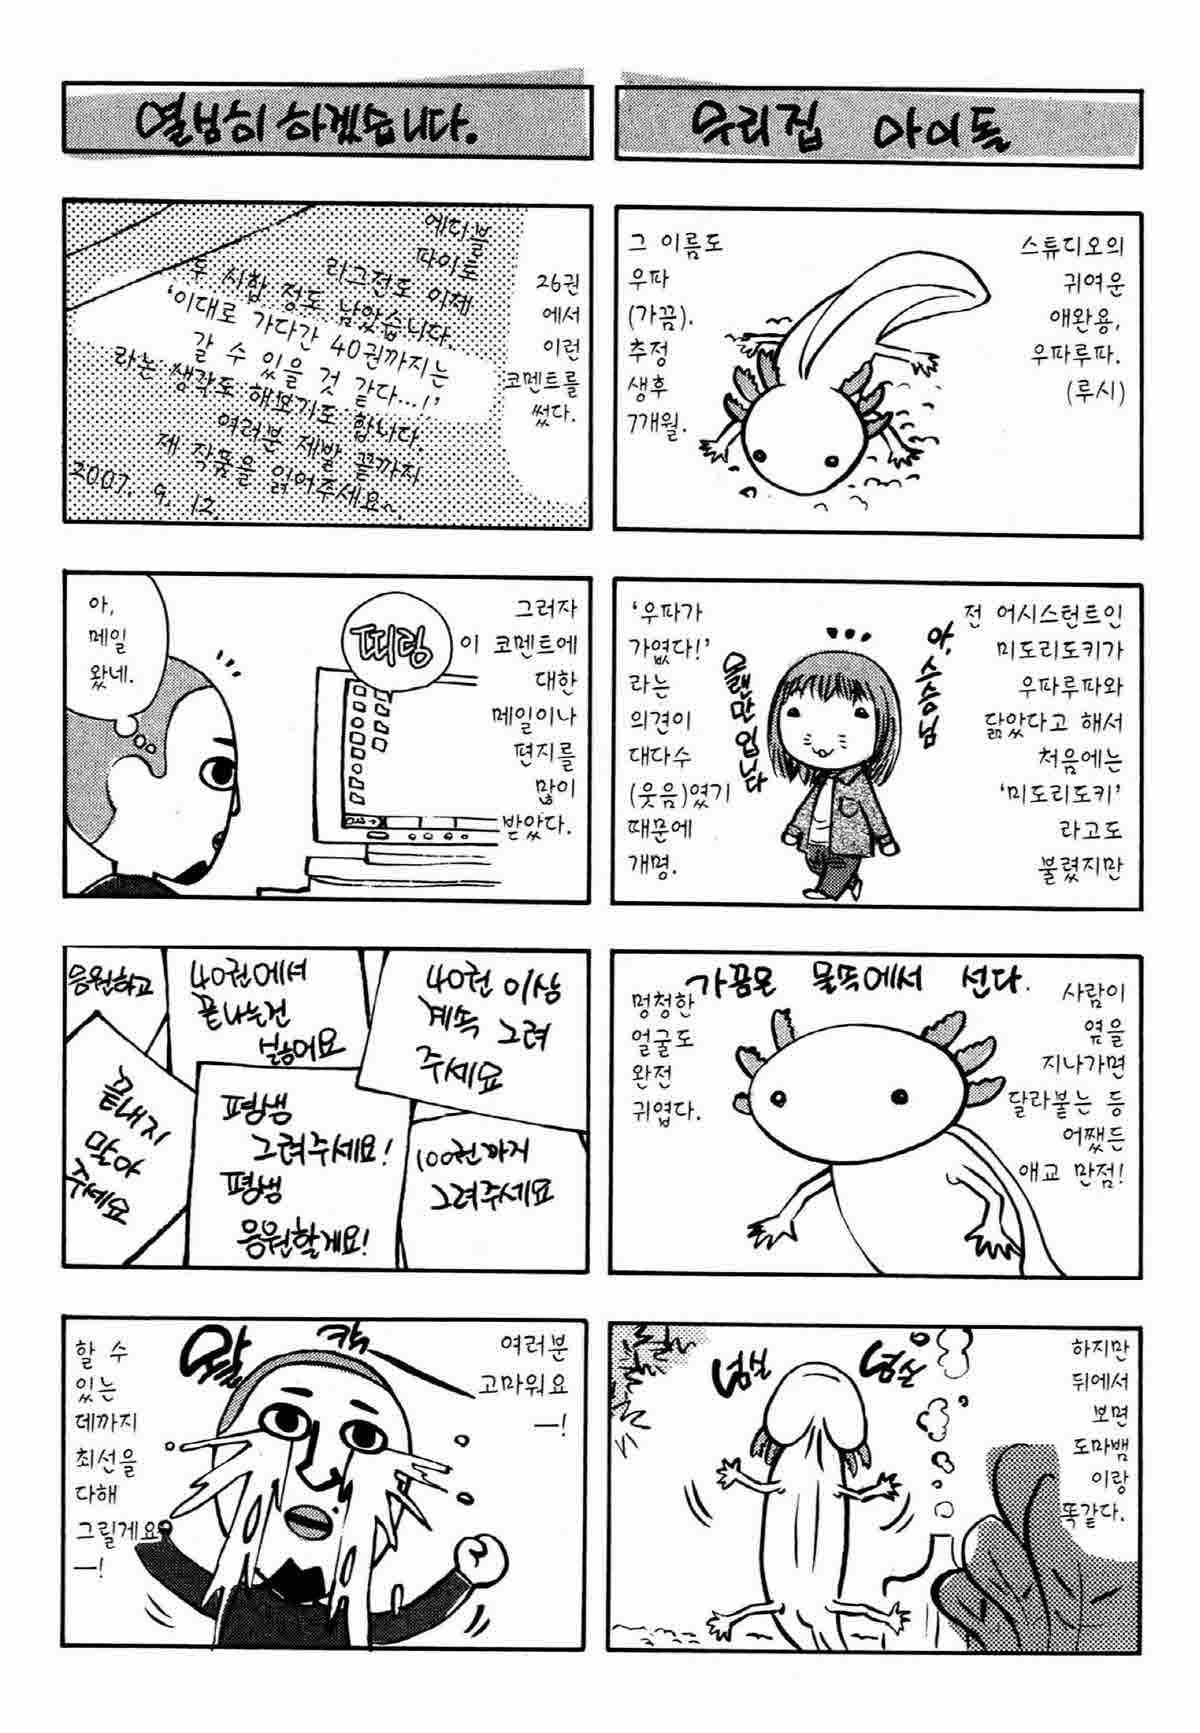 우리집 아이돌
스튜디오의
귀여운
애완용,
우파루파.
(루시)
그 이름도
우파
(가끔).
추정
생후
7개월.
전 어시스턴트인
미도리도키가
우파루파와
닮았다고 해서
처음에는
'미도리도키'
라고도
불렸지만
아, 스승님
오랜만입니다
'우파가
가엾다!'
라는
의견이
대다수
(웃음)였기
때문에
개명.
가끔은 물속에서 선다.
사람이
옆을
지나가면
달라붙는 등
어쨌든
애교 만점!
멍청한
얼굴도
완전
귀엽다.
하지만
뒤에서
보면
도마뱀
이랑
똑같다.
넘실
넘실
열심히 하겠습니다.
26권
에서
이런
코멘트를
썼다.
에디블
파이트
리그전도 이제
두 시합 정도 남았습니다.
'이대로 가다간 40권까지는
갈 수 있을 것 같다...!'
라는 생각도 해보기도 합니다.
여러분 제발 끝까지
제 작품을 읽어주세요~.
2007. 9. 12.
그러자
이 코멘트에
대한
메일이나
편지를
많이
받았다.
띠링
아,
메일
왔네.
40권 이상
계속 그려
주세요
40권에서
끝나는건
싫어요
응원하고
100권까지
그려주세요
평생
그려주세요!
평생
응원할게요!
끝내지
말아
주세요
여러분
고마워요
—!
할 수
있는
데까지
최선을
다해
그릴게요
—!